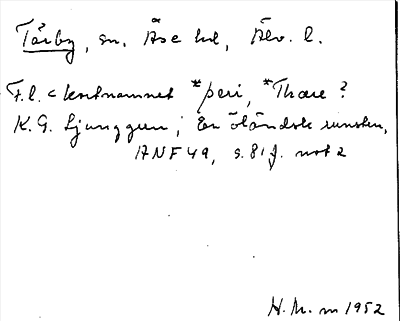 Tärby, sn. Ås hd, Älv. l.
F.l. < kortnamnet *þeri, *Thære ?
K. G. Ljunggren, En öländsk runsten,
ANF 49, s. 81 f. not 2
H. M. m 1952